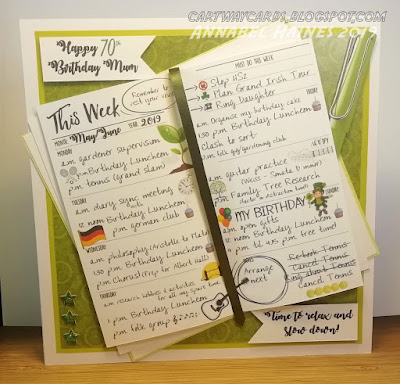 CARTWAYCARDS.BLOGSPOT.COM
ANNABEL HAINES 2019
Happy 70th
Birthday Mum
Remember to
rest your
This Week
MONTH: May/June YEAR: 2019
MONDAY
a.m. gardener supervision
Birthday Luncheon
p.m. tennis (grand slam)
TUESDAY
a.m. diary sync meeting
12 noon Birthday Luncheon
p.m. german club
WEDNESDAY
a.m. philosophy (Aristotle to Plato)
1.30 p.m. Birthday Luncheon
p.m. Chorus (Prep for Albert Hall)
THURSDAY
a.m. research hobbies & activities
for all my spare time
p.m. Birthday Luncheon
p.m. folk group
MUST DO THIS WEEK
Stop HS2
Plan Grand Irish Tour
Ring Daughter
a.m. Organise my birthday cake
1.30 p.m. Birthday Luncheon
Clash to sort
p.m. folk gp/gardening club
a.m. guitar practice
Sonata
p.m. Family Tree Research
MY BIRTHDAY
a.m. open gifts
12 noon Birthday Luncheon
p.m. til 4.45 p.m. free time!
Arrange
next
Re-book Tennis
Cancel Tennis
Cancel Tennis
Time to relax and
slow down!